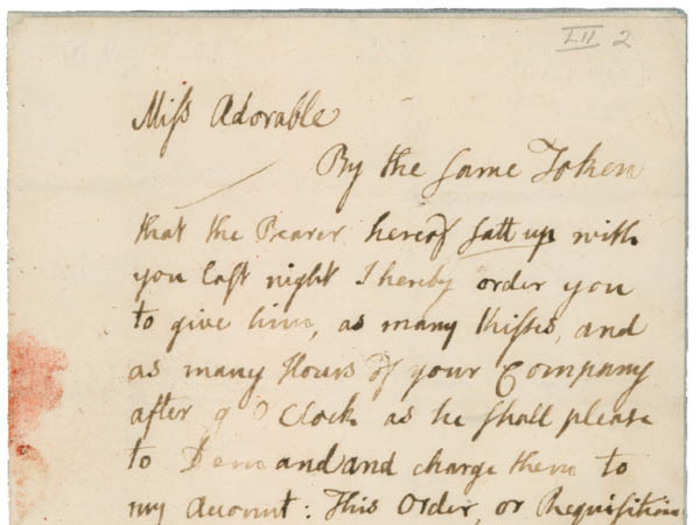 LII 2
Miss Adorable
By the same Token
that the Bearer hereof satt up with
you last night I hereby order you
to give him, as many Kisses, and
as many Hours of your Company
after 9 O Clock as he shall please
to Demand and charge them to
my Account: This Order, or Requisition